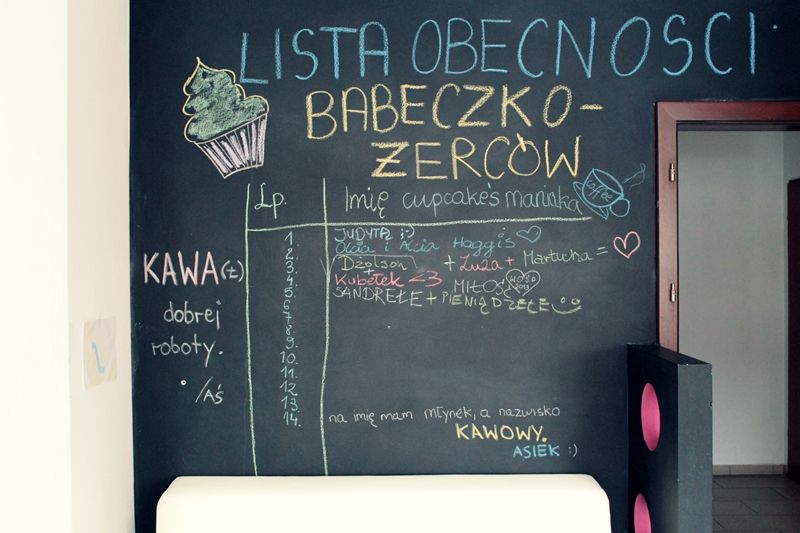 LISTA OBECNOŚCI
BABECZKO-
ŻERCÓW
Lp. Imię cupcake's maniaka
coffee
1. JUDYTA ;)
2. Olcia i Alcia Haggis
3. Dżolson + Luza + Martucha =
4. + Kubełek <3 MIŁOŚĆ
5. SANDREŁE + PIENIĄDZEŁE
6.
7.
8.
9.
10.
11.
12.
13.
14. na imię mam młynek, a nazwisko
KAWOWY.
ASIEK :)
KAWA(ł)
dobrej
roboty.
/Aś